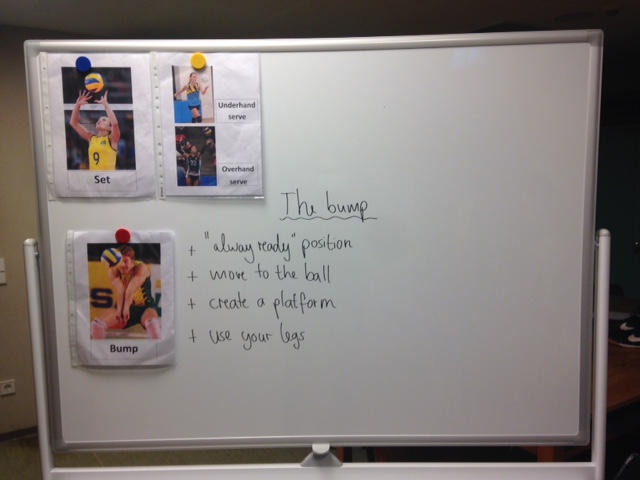 Underhand
serve
9
Overhand
serve
Set
The bump
+ "alway ready" position
+ move to the ball
+ create a platform
+ use your legs
S
Bump